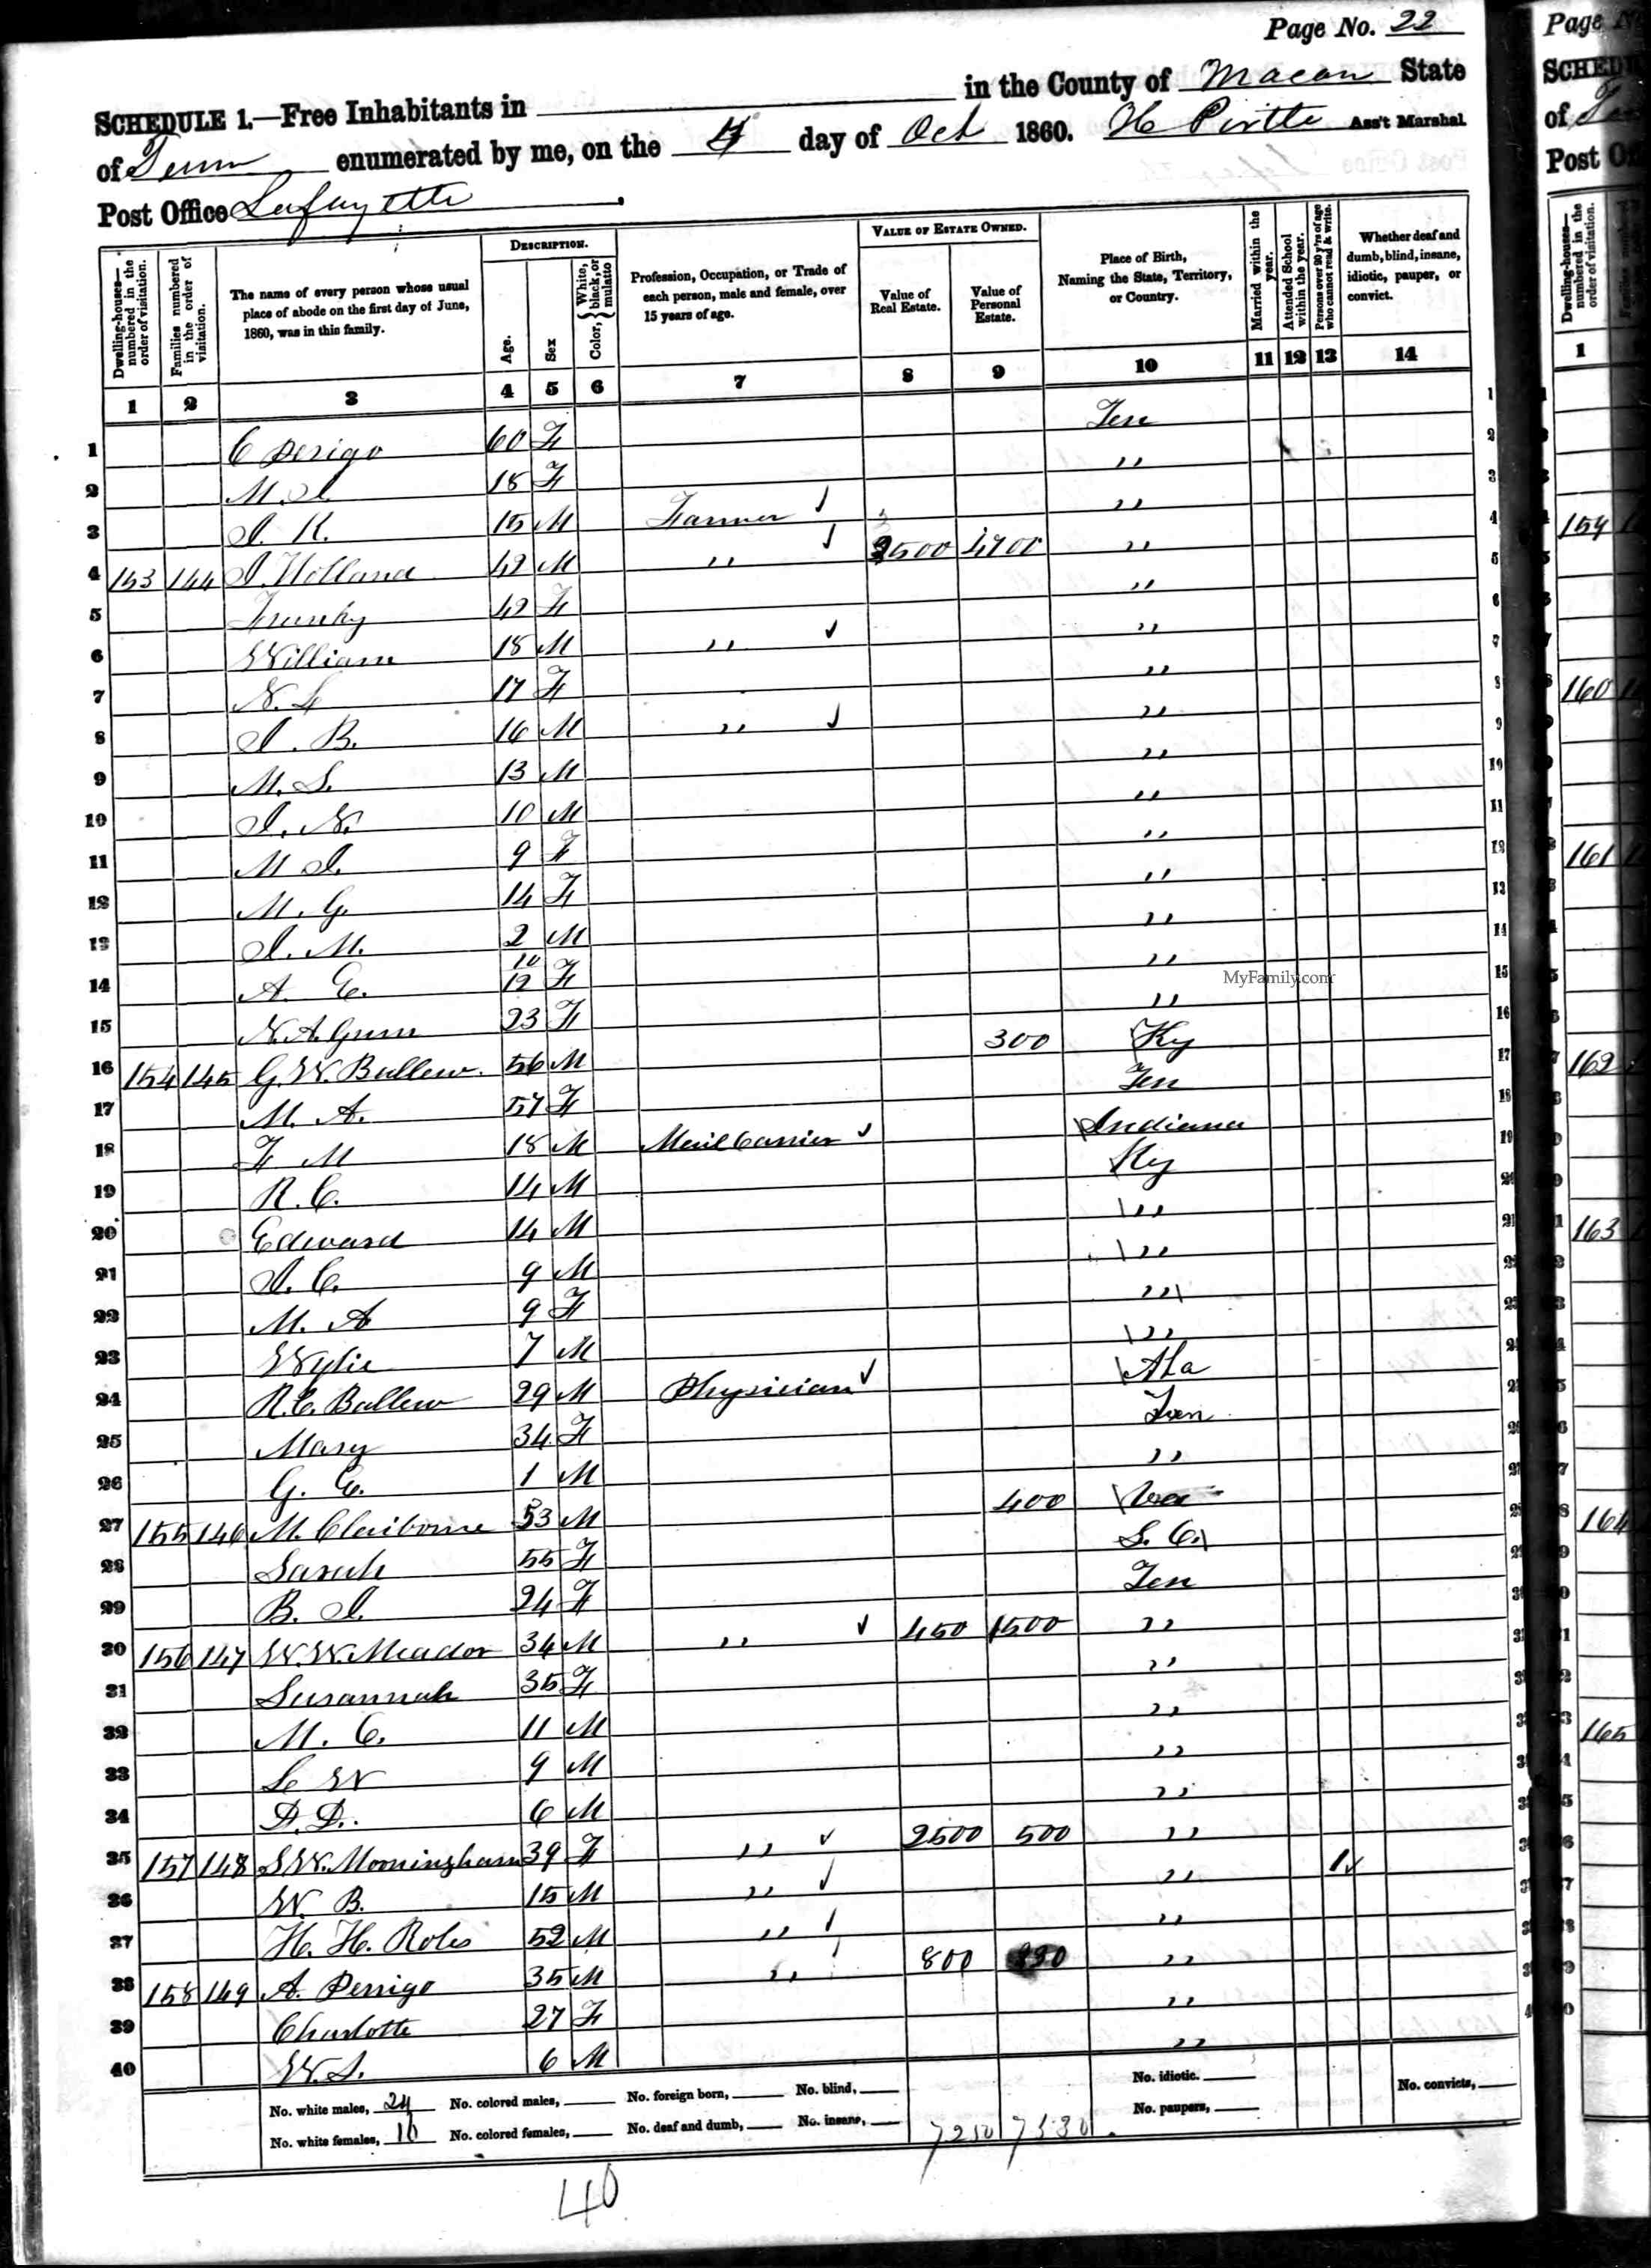 Page No. 22
SCHEDULE 1.—Free Inhabitants in in the County of Macon State
of Tenn enumerated by me, on the 4 day of Oct 1860. H Pirtle Ass't Marshal
Post Office Lafayette
Dwelling-houses—numbered in the order of visitation. Families numbered in the order of visitation. The name of every person whose usual place of abode on the first day of June, 1860, was in this family. DESCRIPTION. Age. Sex Color, { White, black, or mulatto Profession, Occupation, or Trade of each person, male and female, over 15 years of age. VALUE OF ESTATE OWNED. Value of Real Estate. Value of Personal Estate. Place of Birth, Naming the State, Territory, or Country. Married within the year. Attended School within the year. Persons over 20 y'rs of age who cannot read & write. Whether deaf and dumb, blind, insane, idiotic, pauper, or convict.
1 2 3 4 5 6 7 8 9 10 11 12 13 14
1 C Perigo 60 F Ten
2 M. J. 18 F "
3 J. K. 15 M Farmer "
4 153 144 J. Holland 42 M " 3500 4700 "
5 42 F "
6 William 18 M " "
7 N. L 17 F "
8 J. B. 16 M " "
9 M. L. 13 M "
10 J. N. 10 M "
11 M J. 9 F "
12 M. G. 14 F "
13 J. M. 2 M "
14 A. E. 10/12 F "
15 N. A. Gum 23 F "
16 154 145 G. W. Ballew. 56 M 300 Ky
17 M. A. 57 F Ten
18 F M 18 M Mail Carrier Indiana
19 R. C. 14 M Ky
20 Edward 14 M "
21 J. C. 9 M "
22 M. A 9 F "
23 Wylie 7 M "
24 R. C. Ballew 29 M Physician Ala
25 Mary 34 F Ten
26 G. C. 1 M "
27 155 146 M. Claiborne 53 M 400 Va
28 Sarah 55 F S. C.
29 B. J. 24 F Ten
30 156 147 W. W. Meador 34 M " 450 1500 "
31 Susannah 35 F "
32 M. C. 11 M "
33 L W 9 M "
34 D. D. 6 M "
35 157 148 S W. Morningham 39 F " 2500 500 "
36 W. B. 15 M " " 1
37 H. H. Roles 52 M " "
38 158 149 A. Perrigo 35 M " 800 "
39 Charlotte 27 F "
40 W. S. 6 M "
No. white males, 24 No. colored males, No. foreign born, No. blind, No. idiotic. No. convicts,
No. white females, 16 No. colored females, No. deaf and dumb, No. insane, 7250 No. paupers,
40
MyFamily.com
Page
SCHED
of
Post Of
Dwelling-houses—numbered in the order of visitation.
1
159
160
161
162
163
164
165